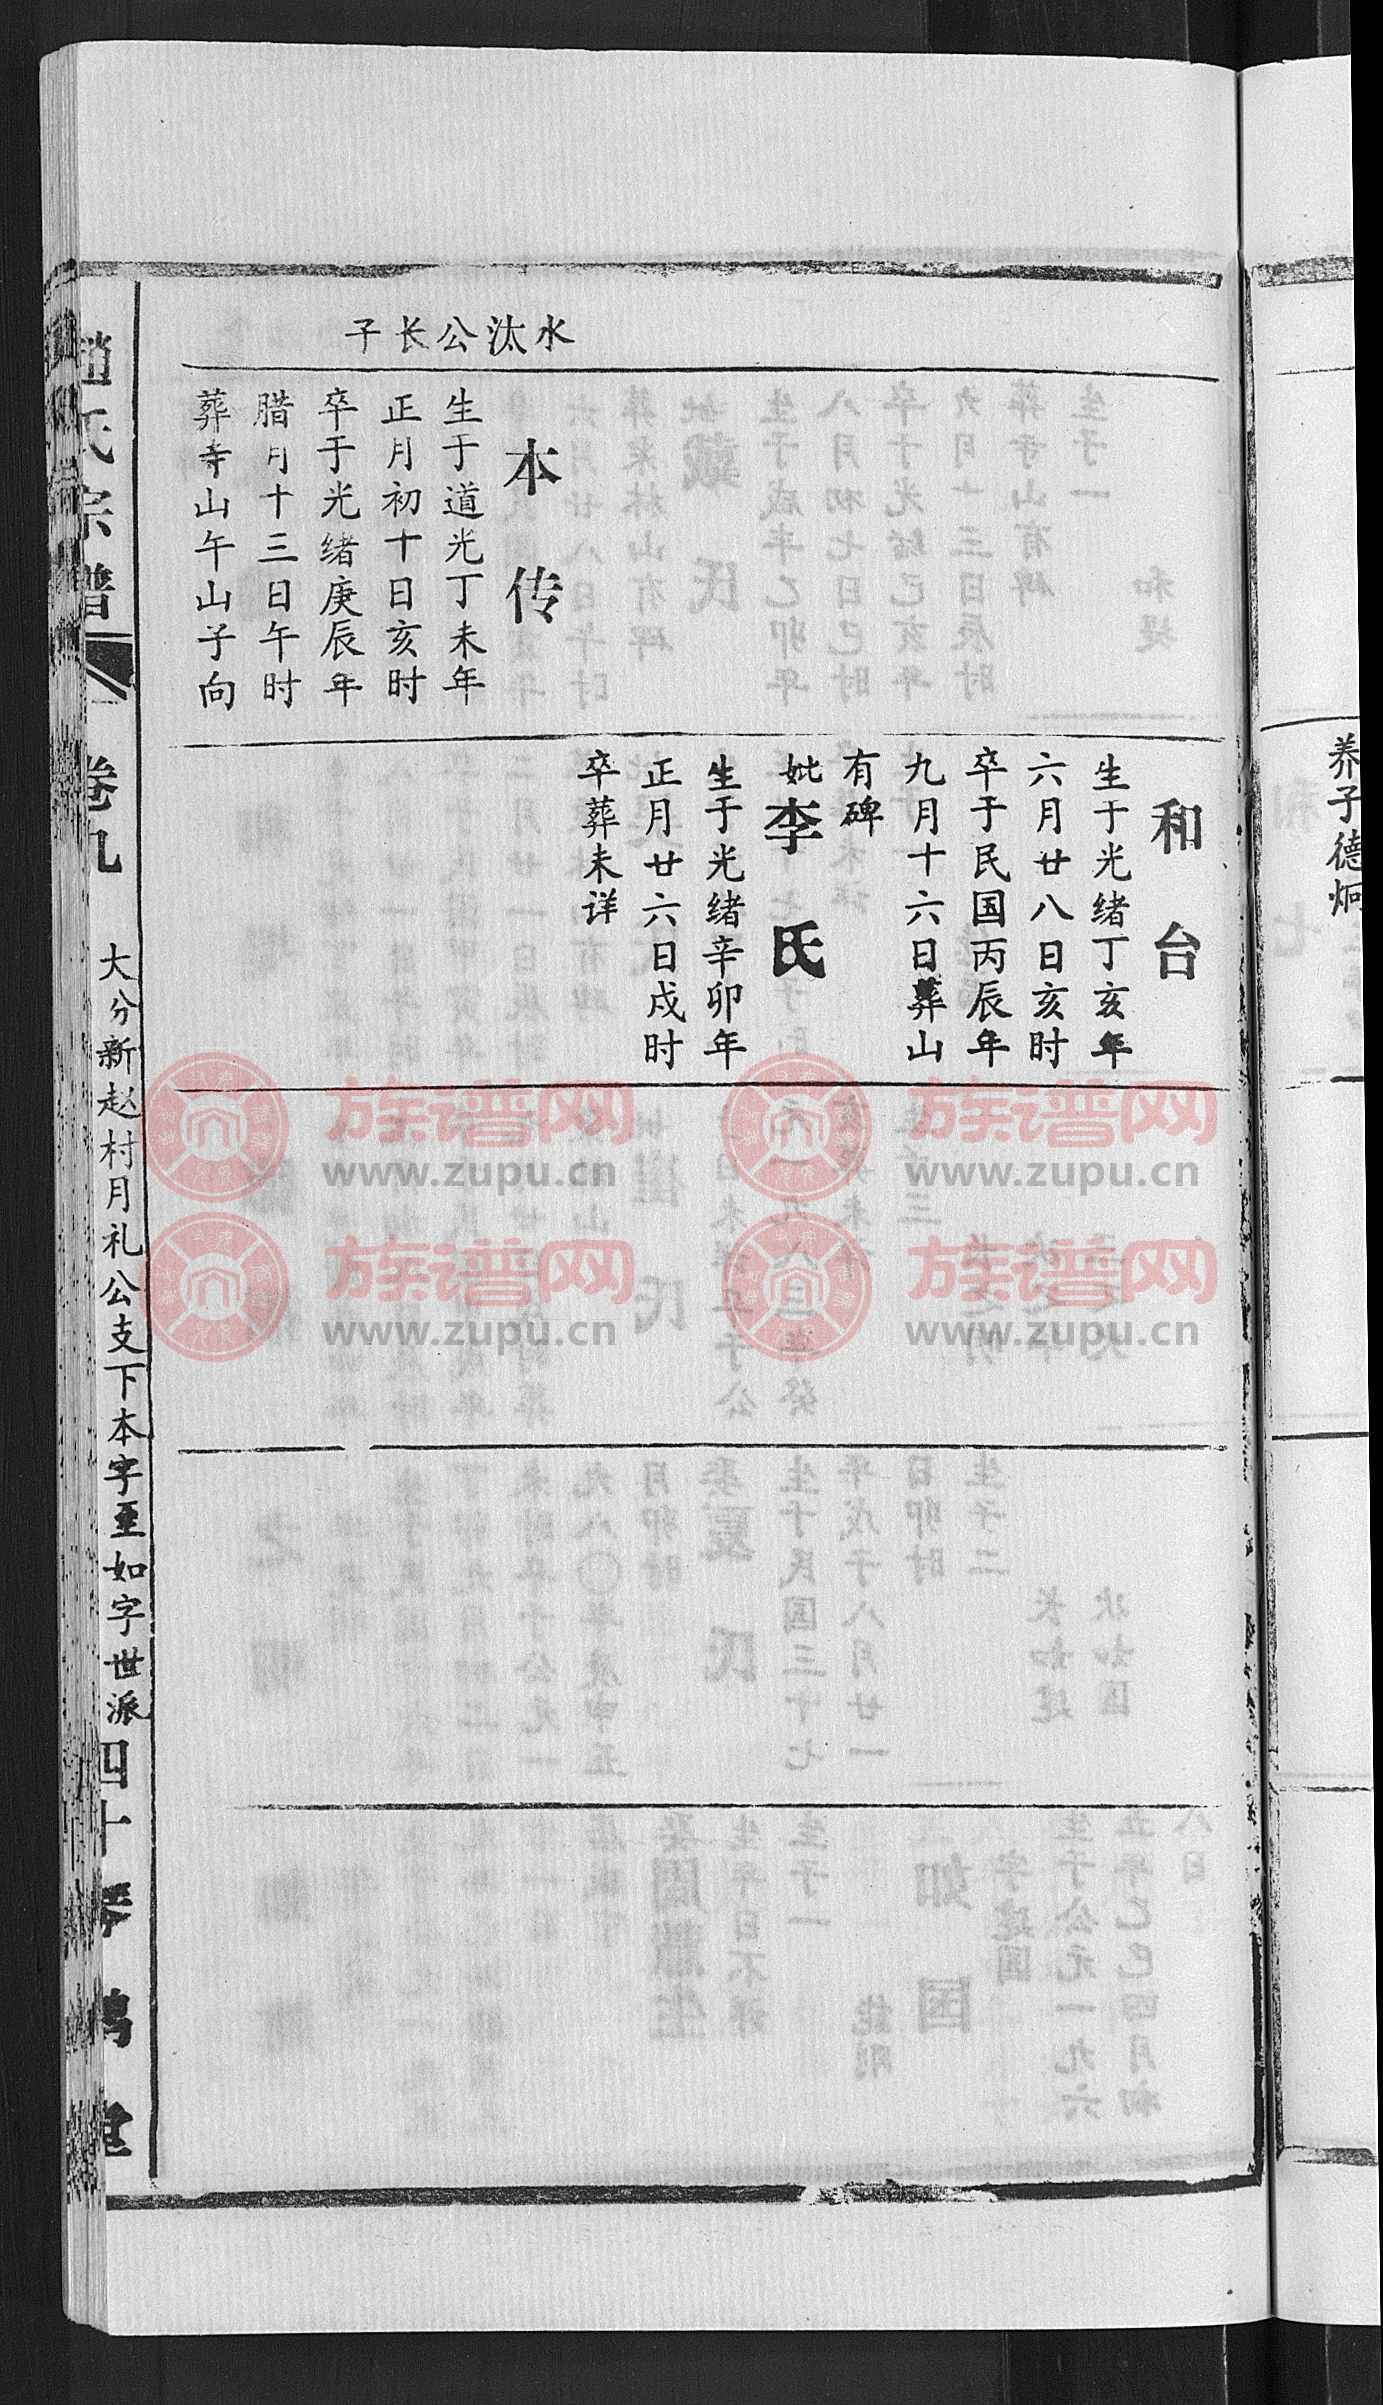 养子德炯
和台
生于光绪丁亥年
六月廿八日亥时
卒于民国丙辰年
九月十六日葬山
有碑
妣李氏
生于光绪辛卯年
正月廿六日戌时
卒葬未详
水汰公长子
本传
生于道光丁未年
正月初十日亥时
卒于光绪庚辰年
腊月十三日午时
葬寺山午山子向
赵氏宗谱
卷九
大分新赵村月礼公支下本字至如字世派
四十
琴鹤堂
族谱网
www.zupu.cn
族谱网
www.zupu.cn
族谱网
www.zupu.cn
族谱网
www.zupu.cn